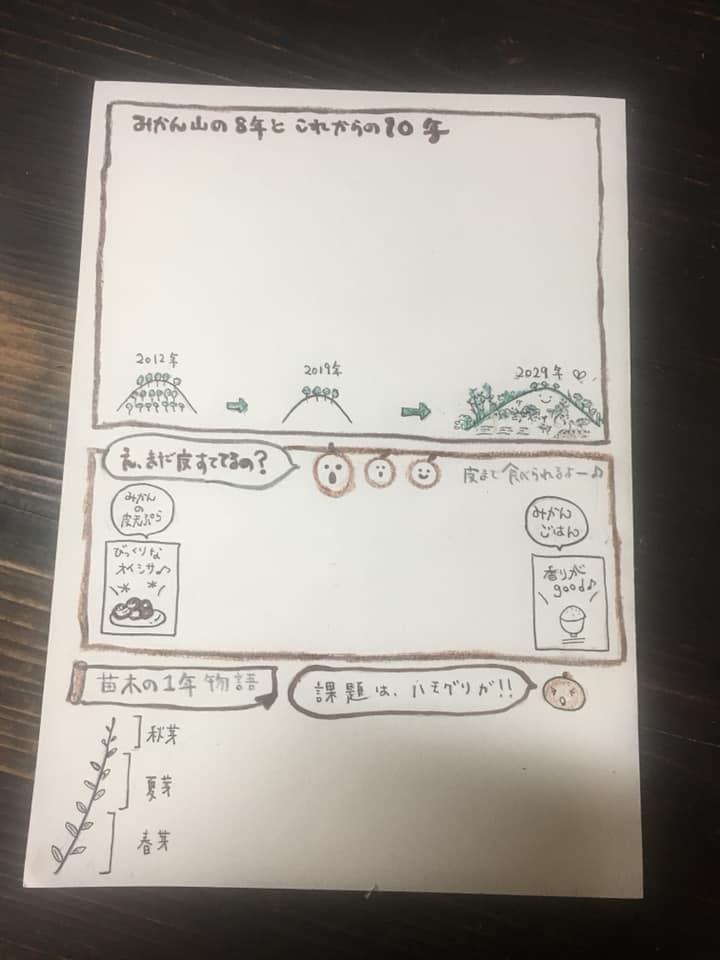 みかん山の8年と これからの10年
2012年
2019年
2029年
え、まだ皮すててるの?
皮まで食べられるよー♪
みかん
の
皮天ぷら
びっくりな
オイシサ♪
みかん
ごはん
香りが
good♪
苗木の1年物語
課題は、ハモグリガ!!
秋芽
夏芽
春芽